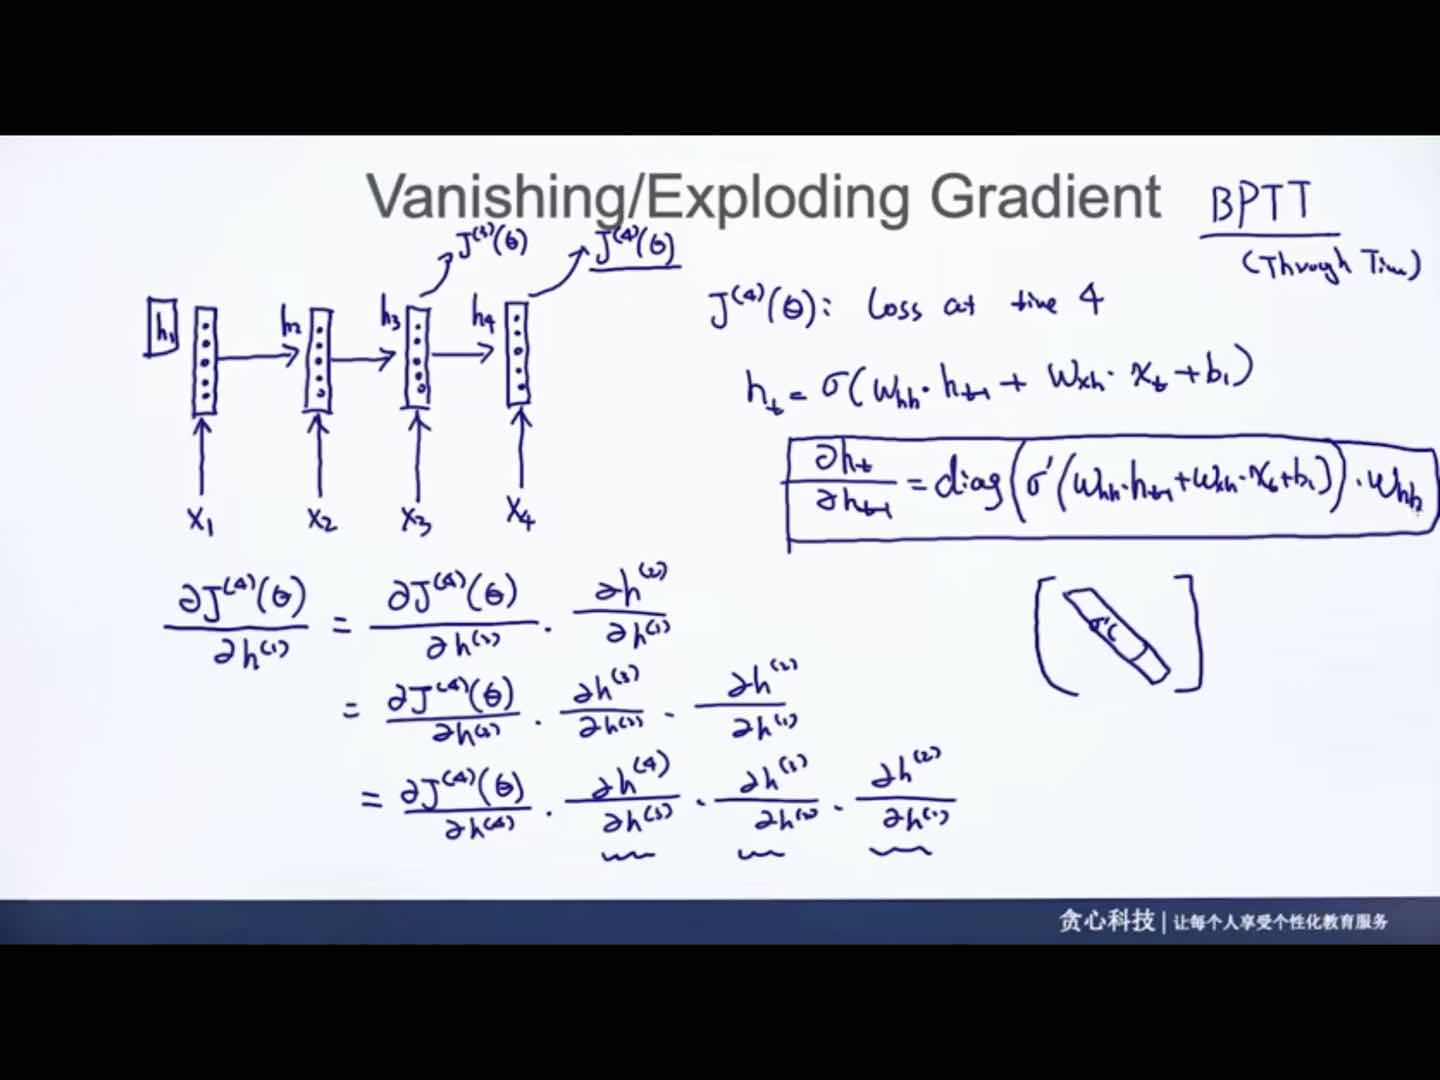 Vanishing/Exploding Gradient
BPTT
(Through Time)
J⁽³⁾(θ) J⁽⁴⁾(θ)
h₁ h₂ h₃ h₄
x₁ x₂ x₃ x₄
J⁽⁴⁾(θ): Loss at time 4
h_t = σ(W_hh · h_t-1 + W_xh · x_t + b₁)
∂h_t/∂h_t-1 = diag(σ'(W_hh · h_t-1 + W_xh · x_t + b₁)) · W_hh
[σ'( ]
∂J⁽⁴⁾(θ)/∂h⁽¹⁾ = ∂J⁽⁴⁾(θ)/∂h⁽²⁾ · ∂h⁽²⁾/∂h⁽¹⁾
= ∂J⁽⁴⁾(θ)/∂h⁽³⁾ · ∂h⁽³⁾/∂h⁽²⁾ · ∂h⁽²⁾/∂h⁽¹⁾
= ∂J⁽⁴⁾(θ)/∂h⁽⁴⁾ · ∂h⁽⁴⁾/∂h⁽³⁾ · ∂h⁽³⁾/∂h⁽²⁾ · ∂h⁽²⁾/∂h⁽¹⁾
贪心科技 | 让每个人享受个性化教育服务